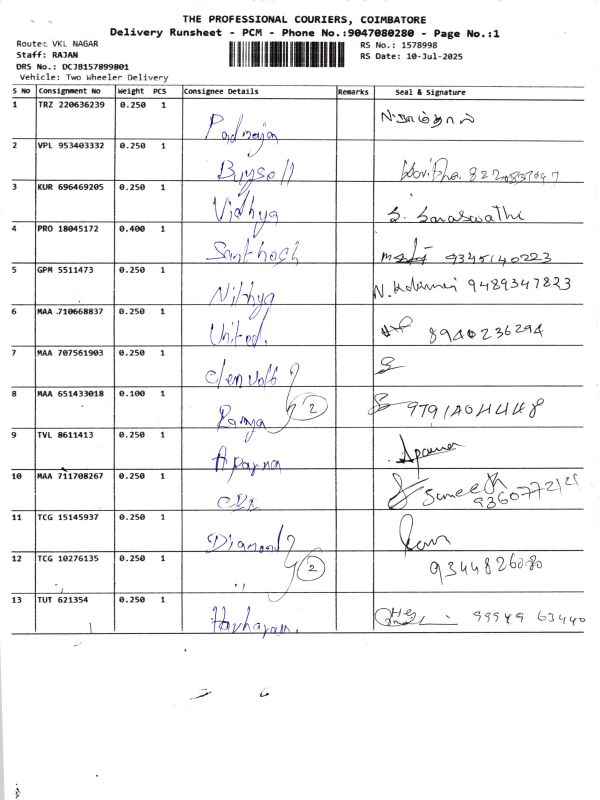 THE PROFESSIONAL COURIERS, COIMBATORE
Delivery Runsheet - PCM - Phone No.:9047080280 - Page No.:1
Route: VKL NAGAR
RS No.: 1578998
Staff: RAJAN
RS Date: 10-Jul-2025
DRS No.: DCJB157899801
Vehicle: Two Wheeler Delivery
S No Consignment No Weight PCS Consignee Details Remarks Seal & Signature
1 TRZ 220636239 0.250 1
2 VPL 953403332 0.250 1
3 KUR 696469205 0.250 1 Vidhya S. Saraswathi
4 PRO 18045172 0.400 1 Santhosh 9345140223
5 GPM 5511473 0.250 1 Nithya 9489347823
6 MAA 710668837 0.250 1 United. 8940236294
7 MAA 707561903 0.250 1
8 MAA 651433018 0.100 1 Ramya 2
9 TVL 8611413 0.250 1 Aparna Aparna
10 MAA 711708267 0.250 1
11 TCG 15145937 0.250 1 Diamond
12 TCG 10276135 0.250 1 " 2
13 TUT 621354 0.250 1 Hariharan. 99949 63440